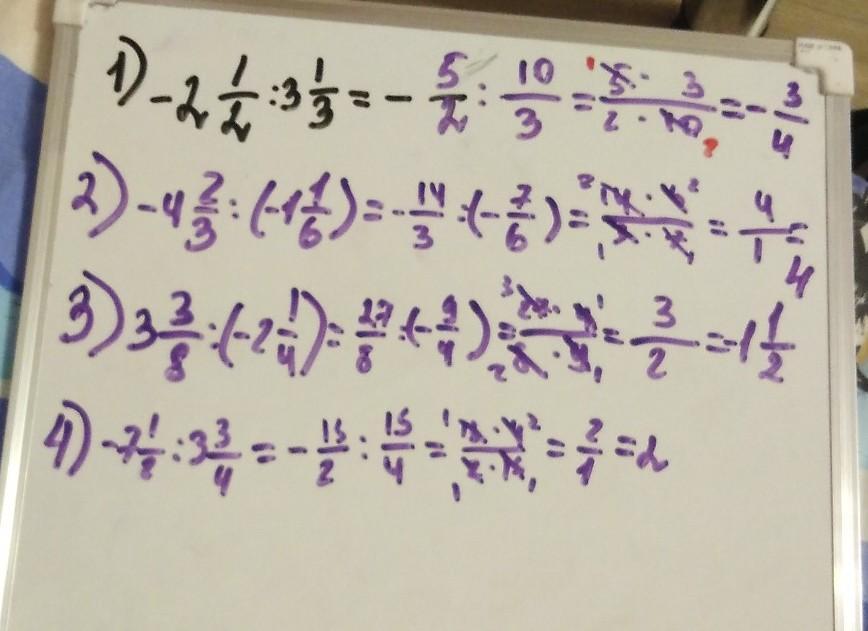 1) -2 1/2 : 3 1/3 = - 5/2 : 10/3 = 5 · 3 / 2 · 10 = - 3/4
2) -4 2/3 : (-1 1/6) = - 14/3 : (- 7/6) = 14 · 6 / 3 · 7 = 4/1 = 4
3) 3 3/8 : (-2 1/4) = 27/8 : (- 9/4) = 27 · 4 / 8 · 9 = 3/2 = -1 1/2
4) -7 1/2 : 3 3/4 = - 15/2 : 15/4 = 15 · 4 / 2 · 15 = 2/1 = 2